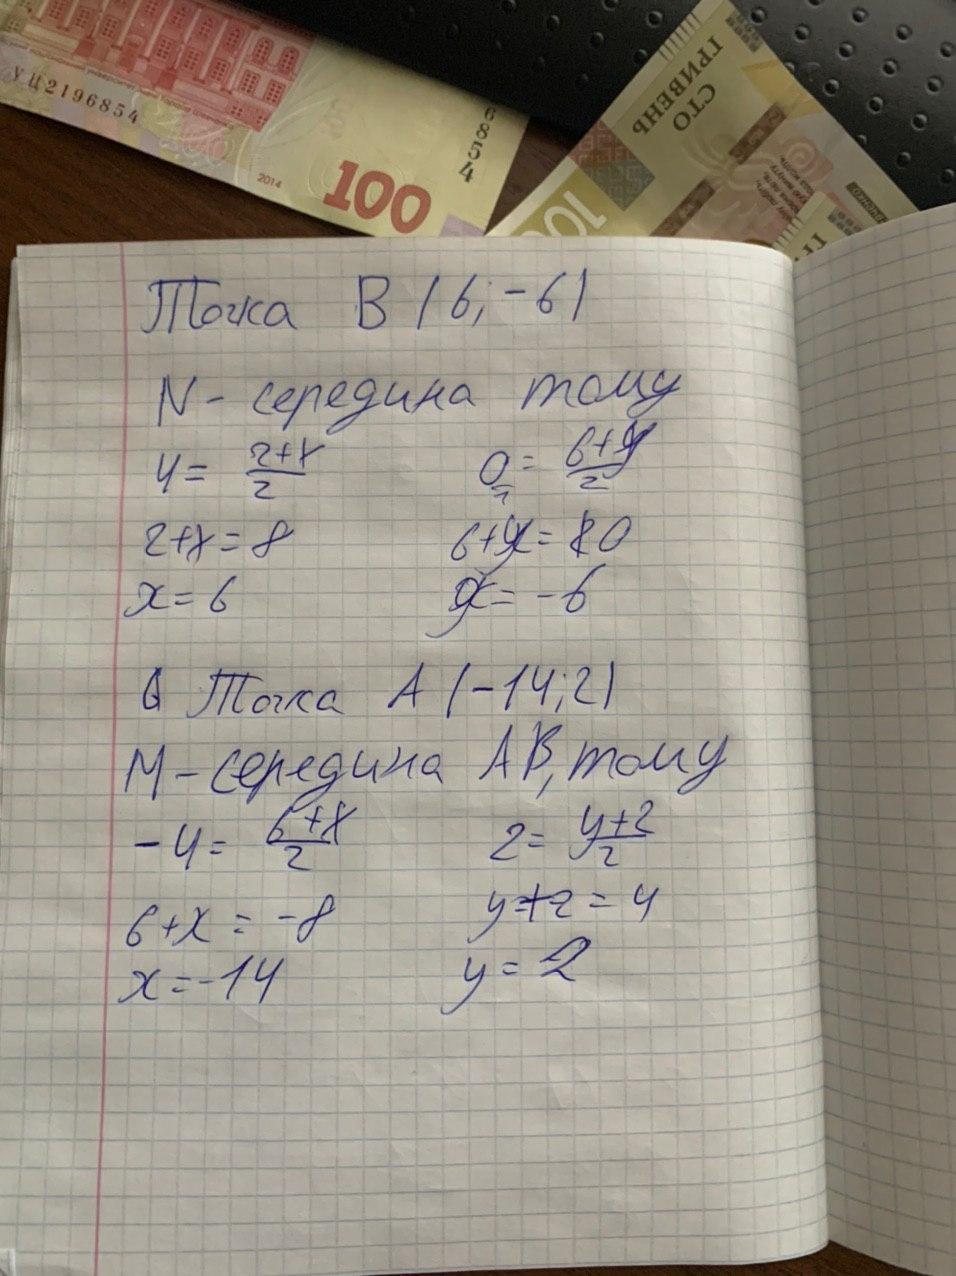 УЦ2196854
6854
2014
100
СТО
ГРИВЕНЬ
100
Точка В (6; -6)
N - середина тому
4 = (2+x)/2 0 = (6+y)/2
2+x = 8 6+y = 0
x = 6 y = -6
Точка А (-14; 2)
М - середина АВ, тому
-4 = (6+x)/2 2 = (y+2)/2
6+x = -8 y+2 = 4
x = -14 y = 2